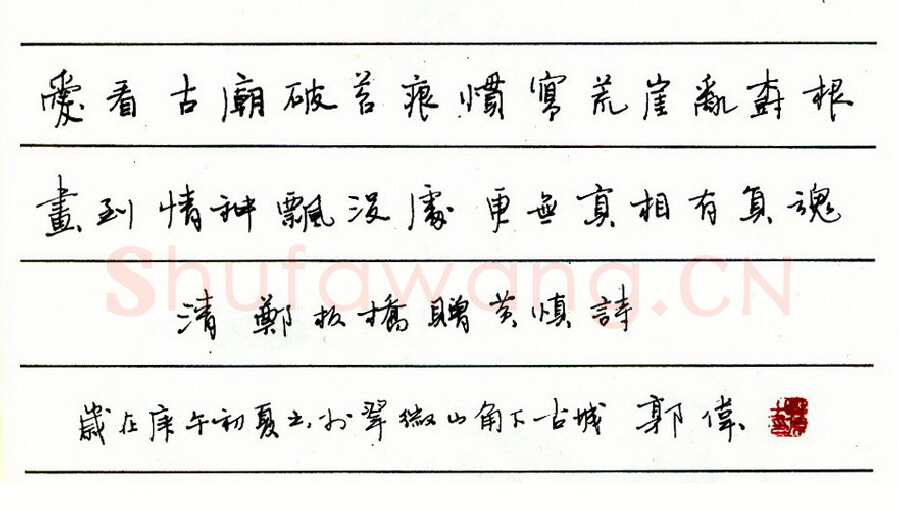 愛看古廟破苔痕慣寫荒崖亂樹根
畫到情神飄没處更無真相有真魂
Shufawang.CN
清鄭板橋贈黄慎詩
歲在庚午初夏書於翠微山角下古城 郭偉